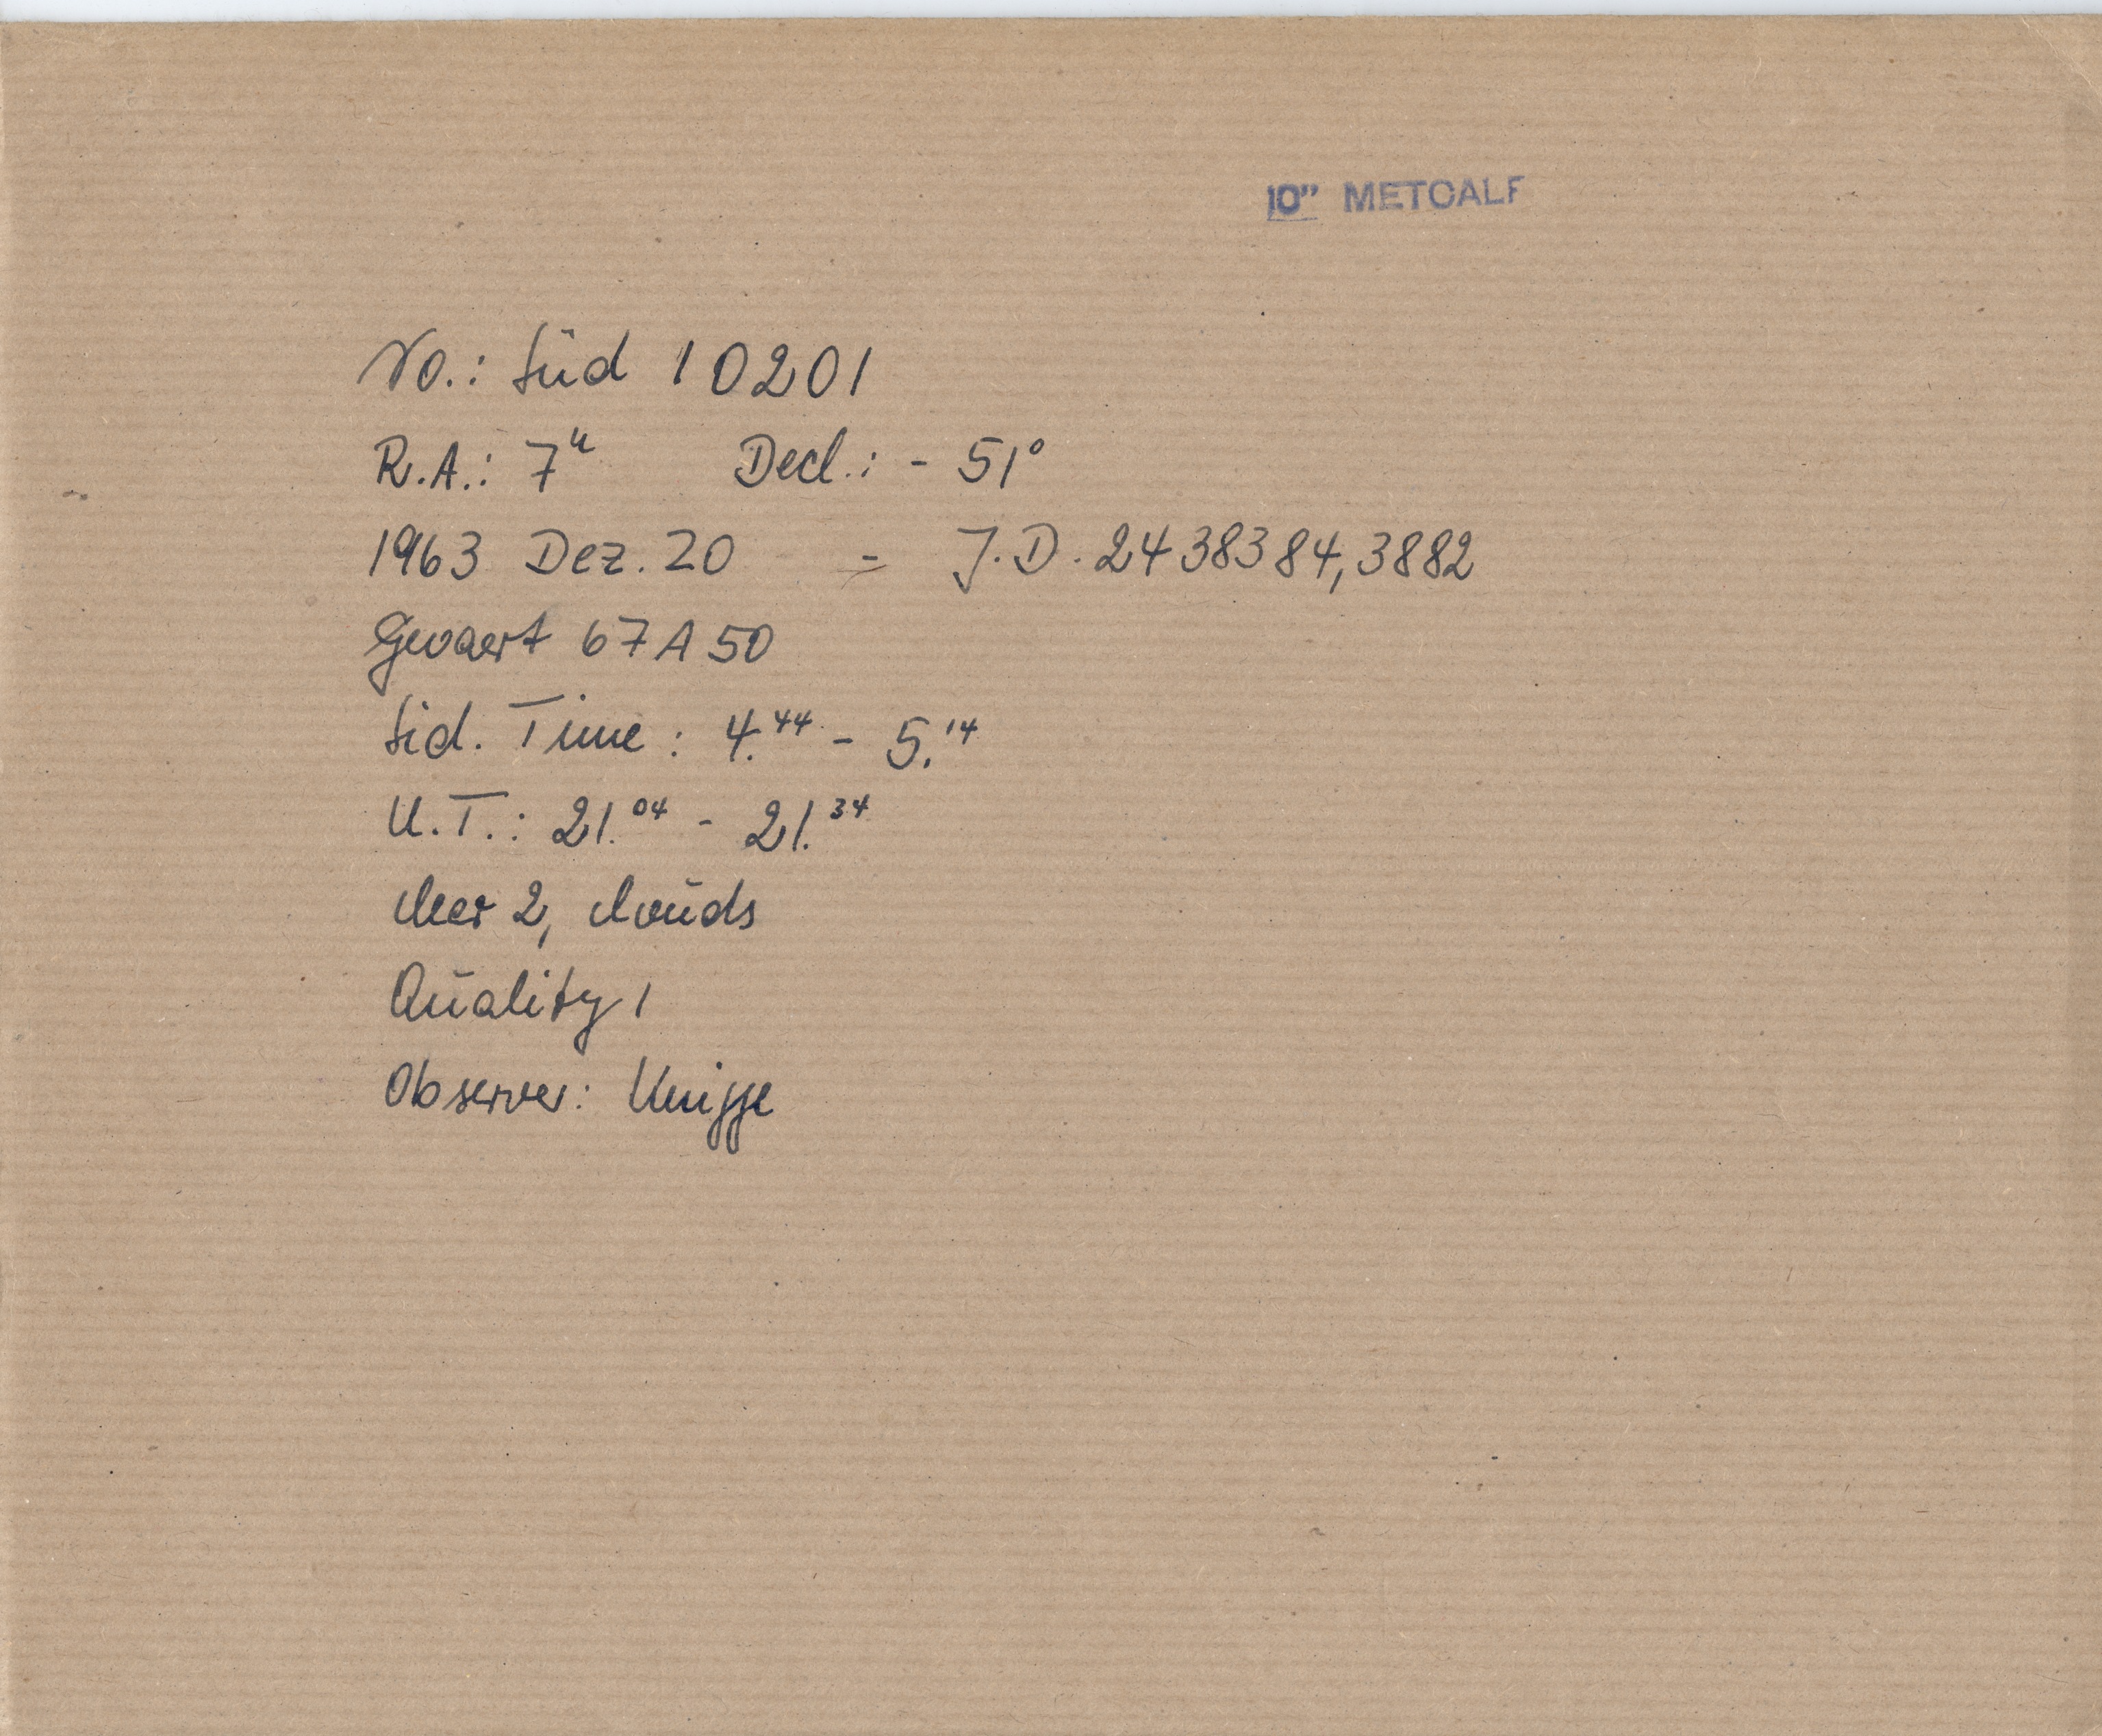 10" METCALF
No.: Süd 10201
R.A.: 7ʰ Decl.: - 51°
1963 Dez. 20 = J.D. 2438384,3882
Gevaert 67A50
Sid. Time: 4.⁴⁴ - 5.¹⁴
U.T.: 21.⁰⁴ - 21.³⁴
cleer 2, clouds
Quality 1
Observer: Knigge